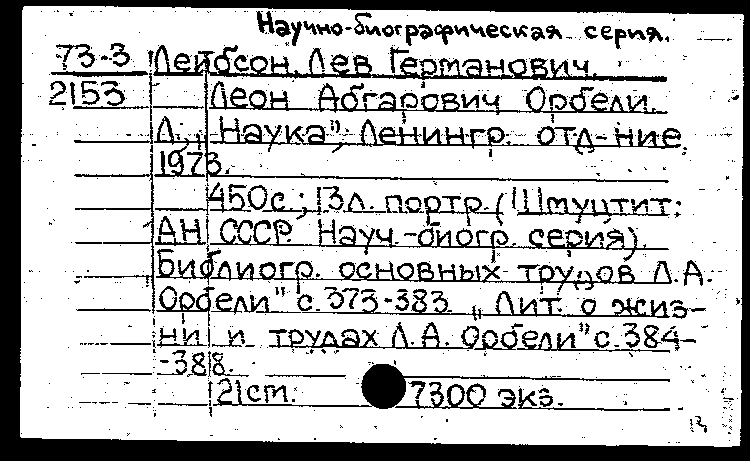 Научно-биографическая серия.
73-3 Лейбсон, Лев Германович.
2153 Леон Абгарович Орбели.
Л., „Наука", Ленингр. отд-ние,
1973.
450с.; 13л. портр. (Шмуцтит:
АН СССР. Науч.-биогр. серия).
Библиогр. основных трудов Л.А.
Орбели" с. 373-383. „Лит. о жиз-
ни и трудах Л.А. Орбели" с. 384-
-388.
21ст. 7300 экз.